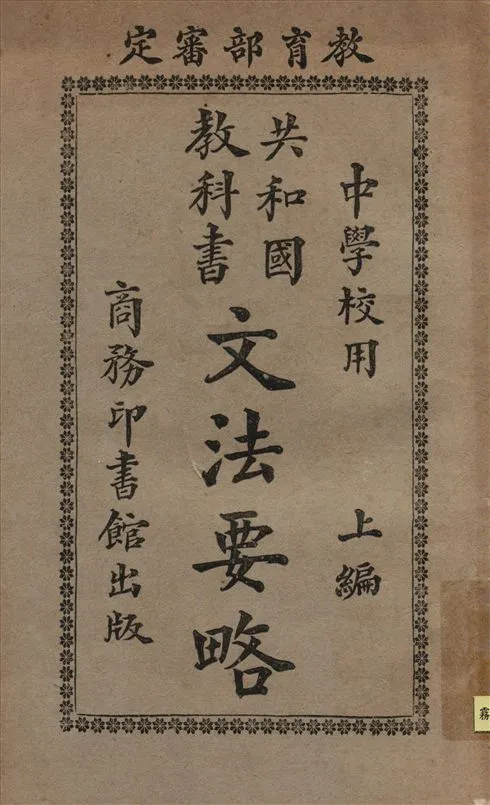 教育部審定
中學校用　上編
共和國
教科書
文法要略
商務印書館出版
霧